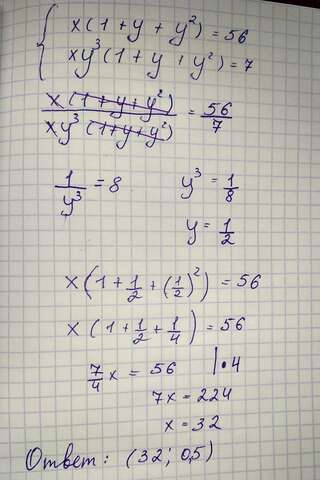 { x(1 + y + y²) = 56
xy³(1 + y + y²) = 7
x(1+y+y²) / xy³(1+y+y²) = 56/7
1/y³ = 8 y³ = 1/8
y = 1/2
x(1 + 1/2 + (1/2)²) = 56
x(1 + 1/2 + 1/4) = 56
7/4 x = 56 |•4
7x = 224
x = 32
Ответ: (32; 0,5)